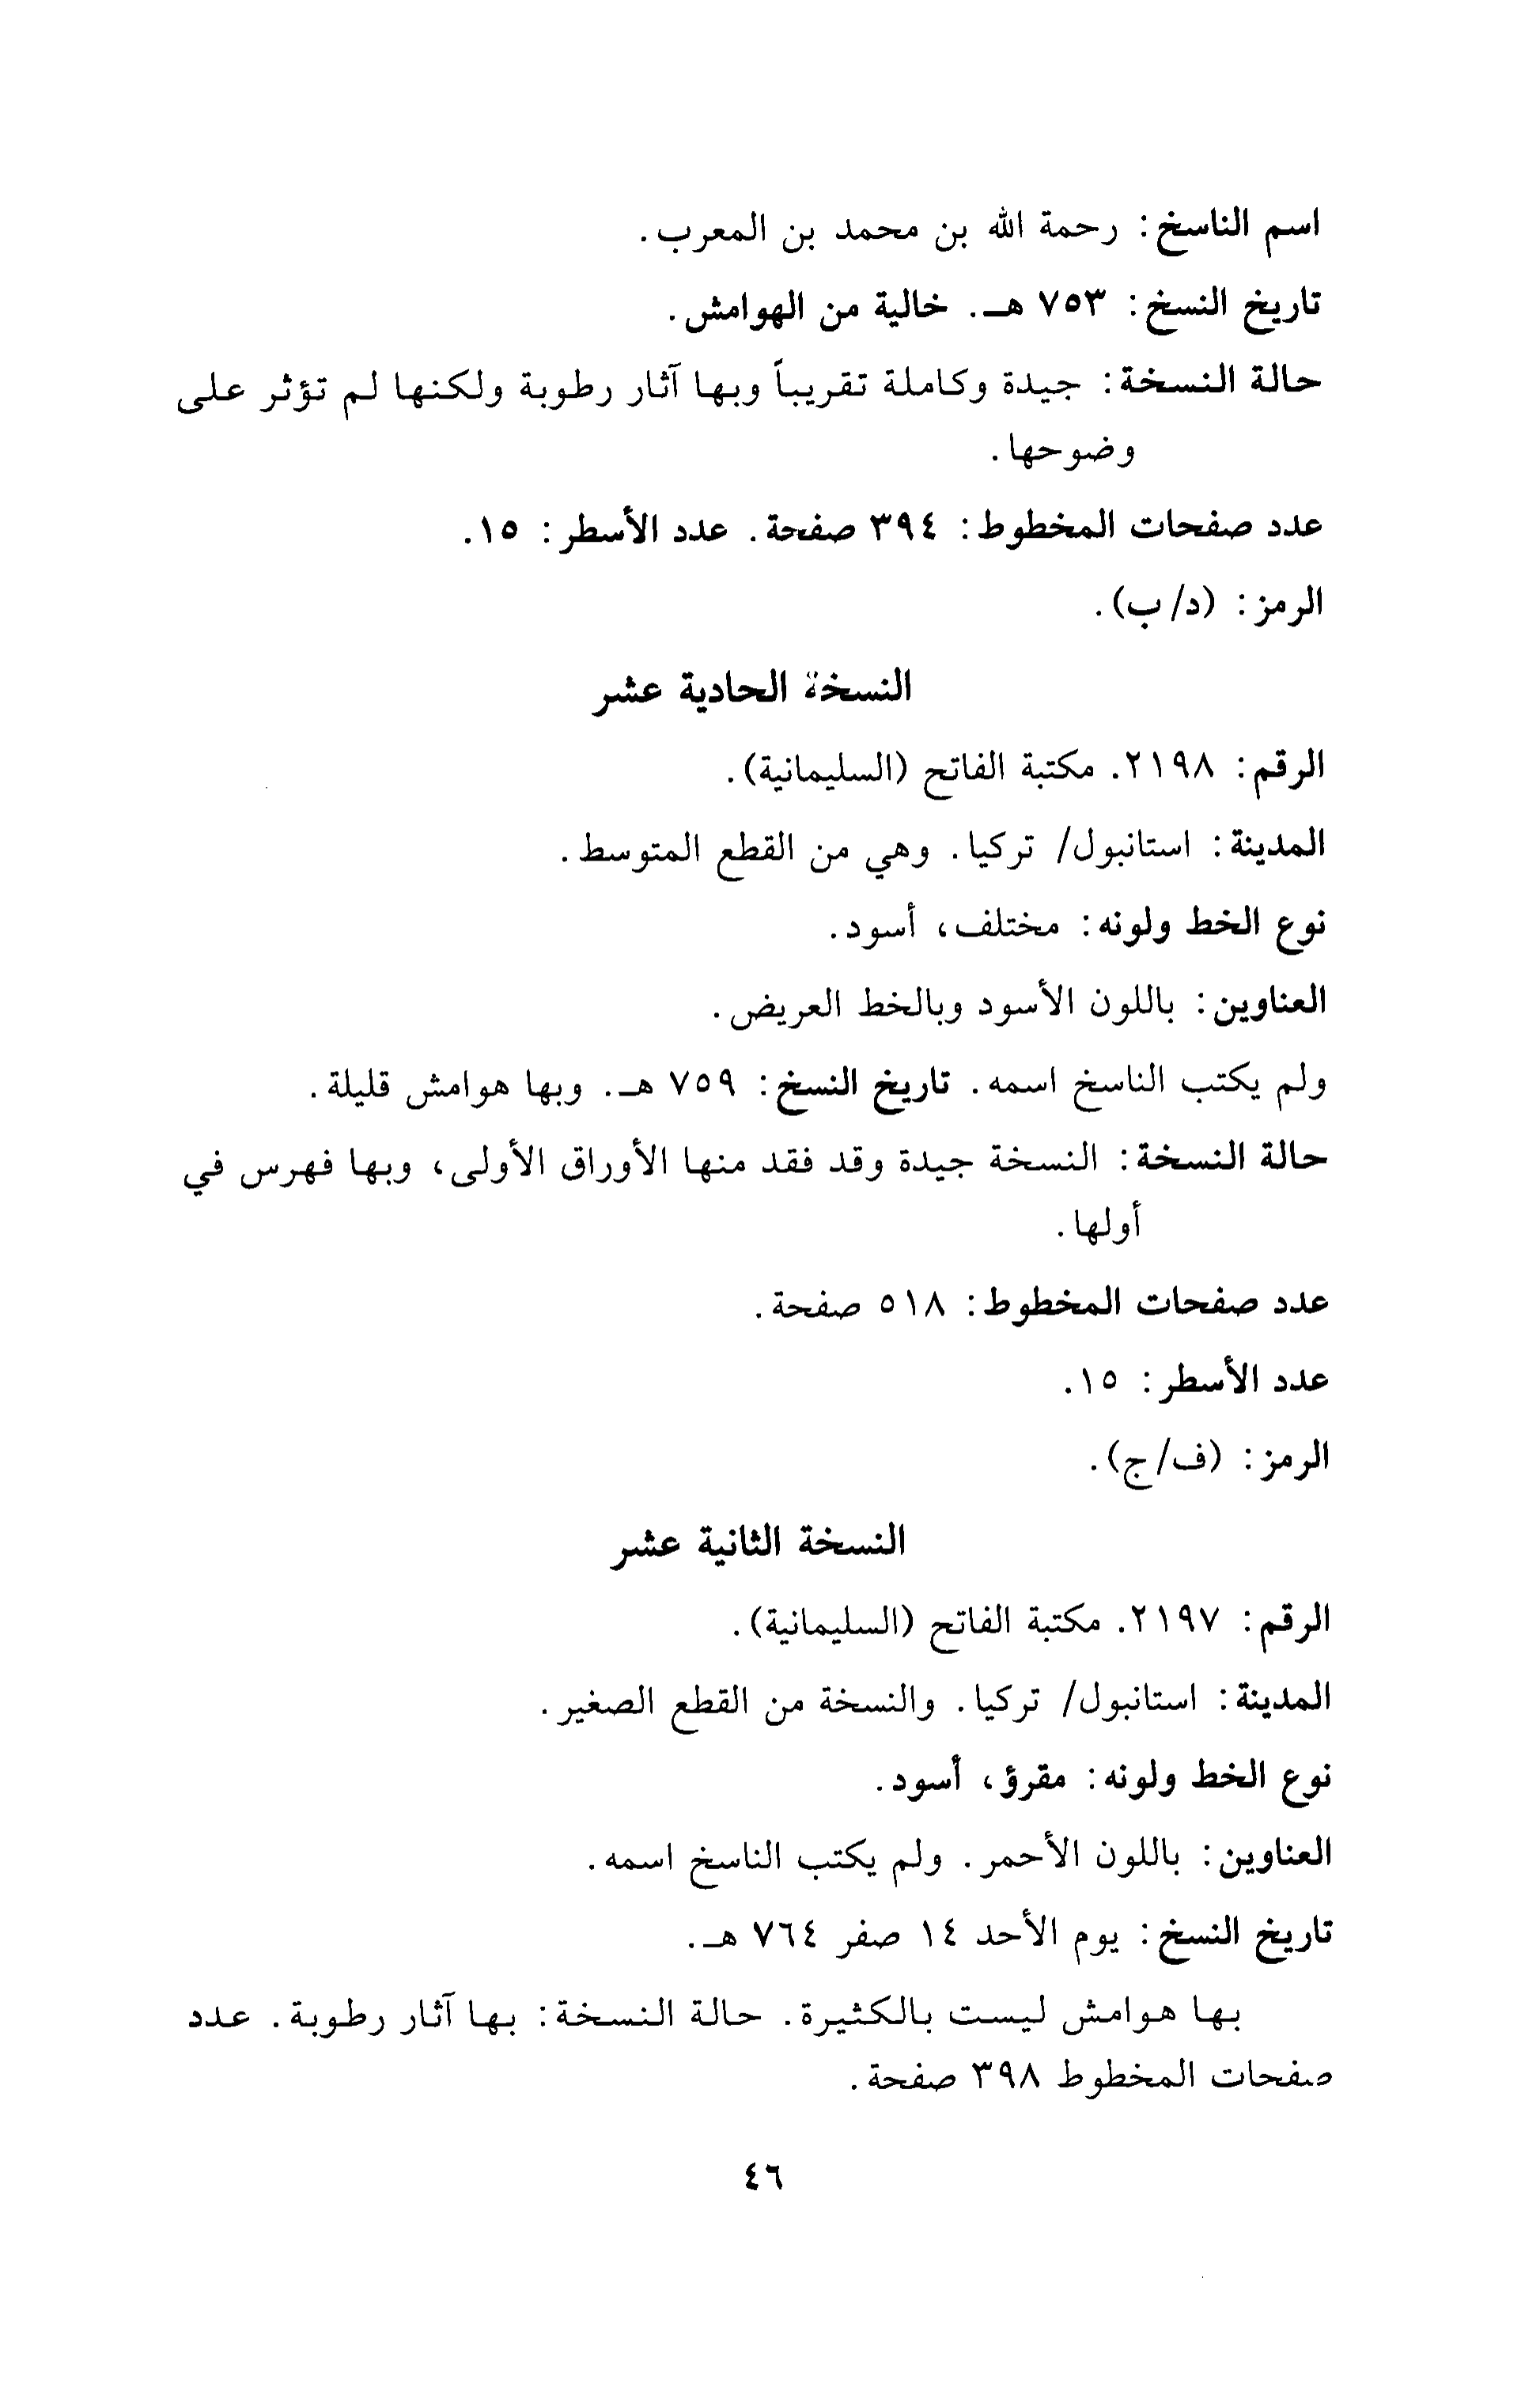 اسم الناسخ: رحمة الله بن محمد بن المعرب.
تاريخ النسخ: ٧٥٣ هـ. خالية من الهوامش.
حالة النسخة: جيدة وكاملة تقريباً وبها آثار رطوبة ولكنها لم تؤثر على
وضوحها.
عدد صفحات المخطوط: ٣٩٤ صفحة. عدد الأسطر: ١٥.
الرمز: (د/ ب).
النسخة الحادية عشر
الرقم: ٢١٩٨. مكتبة الفاتح (السليمانية).
المدينة: استانبول/ تركيا. وهي من القطع المتوسط.
نوع الخط ولونه: مختلف، أسود.
العناوين: باللون الأسود وبالخط العريض.
ولم يكتب الناسخ اسمه. تاريخ النسخ: ٧٥٩ هـ. وبها هوامش قليلة.
حالة النسخة: النسخة جيدة وقد فقد منها الأوراق الأولى، وبها فهرس في
أولها.
عدد صفحات المخطوط: ٥١٨ صفحة.
عدد الأسطر: ١٥.
الرمز: (ف/ ج).
النسخة الثانية عشر
الرقم: ٢١٩٧. مكتبة الفاتح (السليمانية).
المدينة: استانبول/ تركيا. والنسخة من القطع الصغير.
نوع الخط ولونه: مقرؤ، أسود.
العناوين: باللون الأحمر. ولم يكتب الناسخ اسمه.
تاريخ النسخ: يوم الأحد ١٤ صفر ٧٦٤ هـ.
بها هوامش ليست بالكثيرة. حالة النسخة: بها آثار رطوبة. عدد
صفحات المخطوط ٣٩٨ صفحة.
٤٦